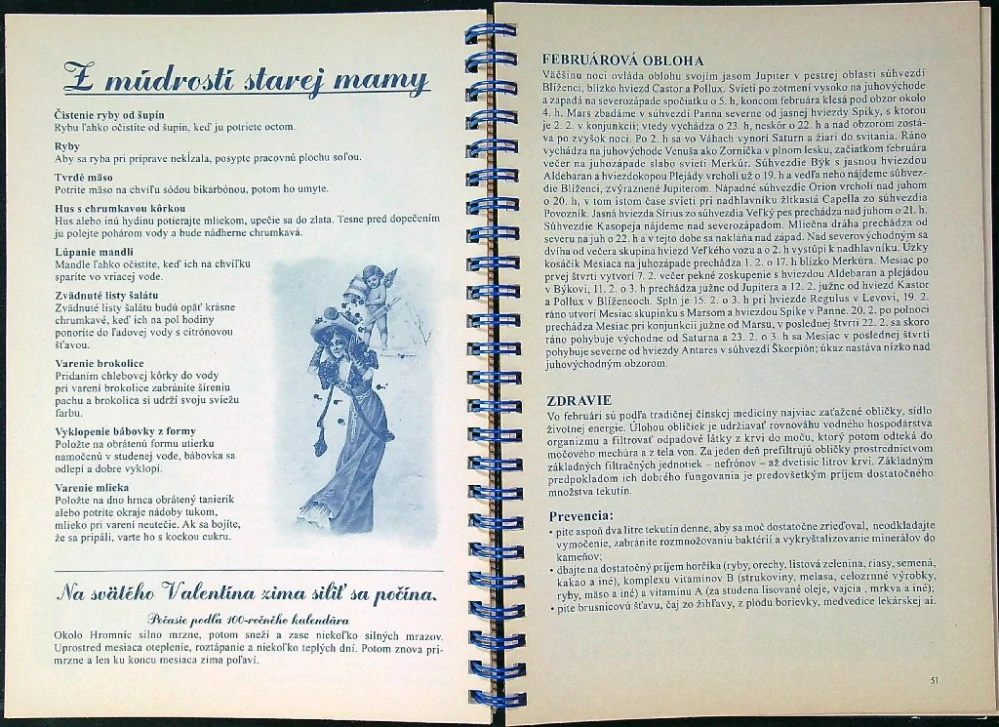 Z múdrostí starej mamy
Čistenie ryby od šupín
Rybu ľahko očistíte od šupín, keď ju potriete octom.
Ryby
Aby sa ryba pri príprave nekĺzala, posypte pracovnú plochu soľou.
Tvrdé mäso
Potrite mäso na chvíľu sódou bikarbónou, potom ho umyte.
Hus s chrumkavou kôrkou
Hus alebo inú hydinu potierajte mliekom, upečie sa do zlata. Tesne pred dopečením
ju polejte pohárom vody a bude nádherne chrumkavá.
Lúpanie mandlí
Mandle ľahko očistíte, keď ich na chvíľku
sparíte vo vriacej vode.
Zvädnuté listy šalátu
Zvädnuté listy šalátu budú opäť krásne
chrumkavé, keď ich na pol hodiny
ponoríte do ľadovej vody s citrónovou
šťavou.
Varenie brokolice
Pridaním chlebovej kôrky do vody
pri varení brokolice zabránite šíreniu
pachu a brokolica si udrží svoju sviežu
farbu.
Vyklopenie bábovky z formy
Položte na obrátenú formu utierku
namočenú v studenej vode, bábovka sa
odlepí a dobre vyklopí.
Varenie mlieka
Položte na dno hrnca obrátený tanierik
alebo potrite okraje nádoby tukom,
mlieko pri varení neutečie. Ak sa bojíte,
že sa pripáli, varte ho s kockou cukru.
Na svätého Valentína zima siliť sa počína.
Počasie podľa 100-ročného kalendára
Okolo Hromníc silno mrzne, potom sneží a zase niekoľko silných mrazov.
Uprostred mesiaca oteplenie, roztápanie a niekoľko teplých dní. Potom znova pri-
mrzne a len ku koncu mesiaca zima poľaví.
FEBRUÁROVÁ OBLOHA
Väčšinu noci ovláda oblohu svojím jasom Jupiter v pestrej oblasti súhvezdí
Blíženci, blízko hviezd Castor a Pollux. Svieti po zotmení vysoko na juhovýchode
a zapadá na severozápade spočiatku o 5. h, koncom februára klesá pod obzor okolo
4. h. Mars zbadáme v súhvezdí Panna severne od jasnej hviezdy Spiky, s ktorou
je 2. 2. v konjunkcii; vtedy vychádza o 23. h, neskôr o 22. h a nad obzorom zostá-
va po zvyšok noci. Po 2. h sa vo Váhach vynorí Saturn a žiari do svitania. Ráno
vychádza na juhovýchode Venuša ako Zornička v plnom lesku, začiatkom februára
večer na juhozápade slabo svieti Merkúr. Súhvezdie Býk s jasnou hviezdou
Aldebaran a hviezdokopou Plejády vrcholí už o 19. h a vedľa neho nájdeme súhvez-
die Blíženci, zvýraznené Jupiterom. Nápadné súhvezdie Orion vrcholí nad juhom
o 20. h, v tom istom čase svieti pri nadhlavníku žltkastá Capella zo súhvezdia
Povozník. Jasná hviezda Sírius zo súhvezdia Veľký pes prechádza nad juhom o 21. h.
Súhvezdie Kasopeja nájdeme nad severozápadom. Mliečna dráha prechádza od
severu na juh o 22. h a v tejto dobe sa nakláňa nad západ. Nad severovýchodným sa
dvíha od večera skupina hviezd Veľkého vozu a o 2. h vystúpi k nadhlavníku. Úzky
kosáčik Mesiaca na juhozápade prechádza 1. 2. o 17. h blízko Merkúra. Mesiac po
prvej štvrti vytvorí 7. 2. večer pekné zoskupenie s hviezdou Aldebaran a plejádou
v Býkovi, 11. 2. o 3. h prechádza južne od Jupitera a 12. 2. južne od hviezd Kastor
a Pollux v Blížencoch. Spln je 15. 2. o 3. h pri hviezde Regulus v Levovi, 19. 2.
ráno utvorí Mesiac skupinku s Marsom a hviezdou Spike v Panne. 20. 2. po polnoci
prechádza Mesiac pri konjunkcii južne od Marsu, v poslednej štvrti 22. 2. sa skoro
ráno pohybuje východne od Saturna a 23. 2. o 3. h sa Mesiac v poslednej štvrti
pohybuje severne od hviezdy Antares v súhvezdí Škorpión; úkaz nastáva nízko nad
juhovýchodným obzorom.
ZDRAVIE
Vo februári sú podľa tradičnej čínskej medicíny najviac zaťažené obličky, sídlo
životnej energie. Úlohou obličiek je udržiavať rovnováhu vodného hospodárstva
organizmu a filtrovať odpadové látky z krvi do moču, ktorý potom odteká do
močového mechúra a z tela von. Za jeden deň prefiltrujú obličky prostredníctvom
základných filtračných jednotiek – nefrónov – až dvetisíc litrov krvi. Základným
predpokladom ich dobrého fungovania je predovšetkým príjem dostatočného
množstva tekutín.
Prevencia:
• pite aspoň dva litre tekutín denne, aby sa moč dostatočne zrieďoval, neodkladajte
vymočenie, zabránite rozmnožovaniu baktérií a vykryštalizovanie minerálov do
kameňov;
• dbajte na dostatočný príjem horčíka (ryby, orechy, listová zelenina, riasy, semená,
kakao a iné), komplexu vitamínov B (strukoviny, melasa, celozrnné výrobky,
ryby, mäso a iné) a vitamínu A (za studena lisované oleje, vajcia , mrkva a iné);
• pite brusnicovú šťavu, čaj zo žihľavy, z plodu borievky, medvedice lekárskej ai.
51